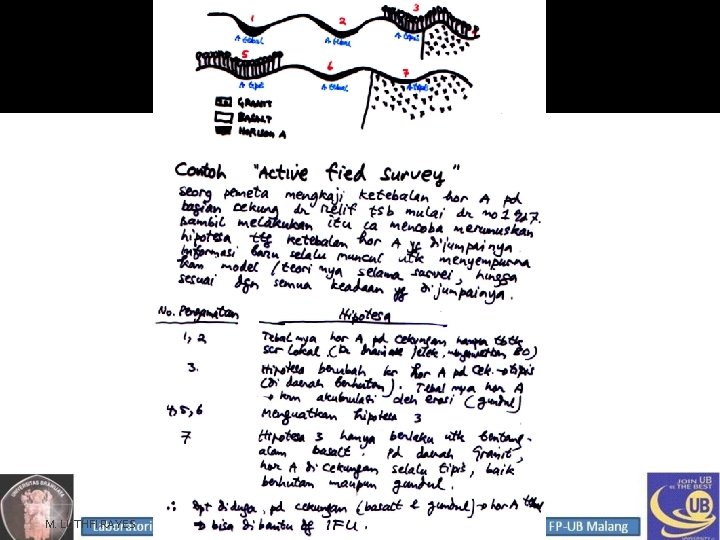 1 2 3 4
A tebal A tebal A tipis
5 6 7
A tipis A tebal A tipis
GRANIT
BASALT
HORISON A
Contoh "Active fied survey"
seorg pemeta mengkaji ketebalan hor A pd
bagian cekung dr relif tsb mulai dr no 1 7.
sambil melakukan itu ia mencoba merumuskan
hipotesa ttg ketebalan hor A yg dijumpainya
Informasi baru selalu muncul utk menyempurna
kan model / teorinya selama survei, hingga
sesuai dgn semua keadaan yg dijumpainya.
No. Pengamatan Hipotesa
1, 2 Tebalnya hor A pd cekungan hanya
scr lokal (kr drainase jelek, BO)
3. Hipotesa berubah hor A pd cek. → tipis
(di daerah berhutan). Tebalnya hor A
→ krn akumulasi oleh erosi (gundul)
4, 5, 6 Menguatkan hipotesa 3
7 Hipotesa 3 hanya berlaku utk bentang-
alam basalt. Pd daerah Granit,
hor A di cekungan selalu tipis, baik
berhutan maupun gundul.
∴ Dpt diduga, pd cekungan (basalt & gundul) → hor A tebal
→ bisa dibantu dg IFU.
UNIVERSITAS BRAWIJAYA
M. LUTHFI RAYES
Laboratori
FP-UB Malang
JOIN UB
BE THE BEST
UB